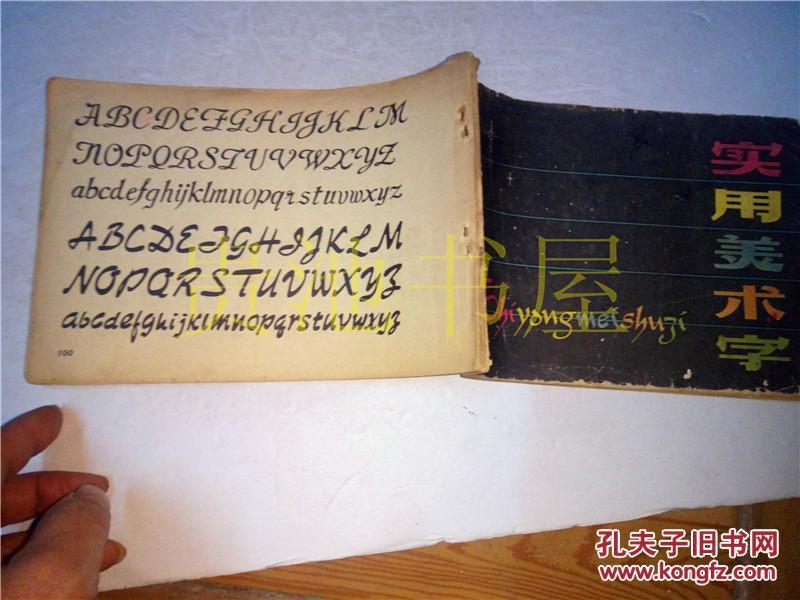 ABCDEFGHIJKLM
NOPQRSTUVWXYZ
abcdefghijklmnopqrstuvwxyz
ABCDEFGHIJKLM
NOPQRSTUVWXYZ
abcdefghijklmnopqrstuvwxyz
100
实用美术字
shiyongmeishuzi
书屋
孔夫子旧书网
www.kongfz.com